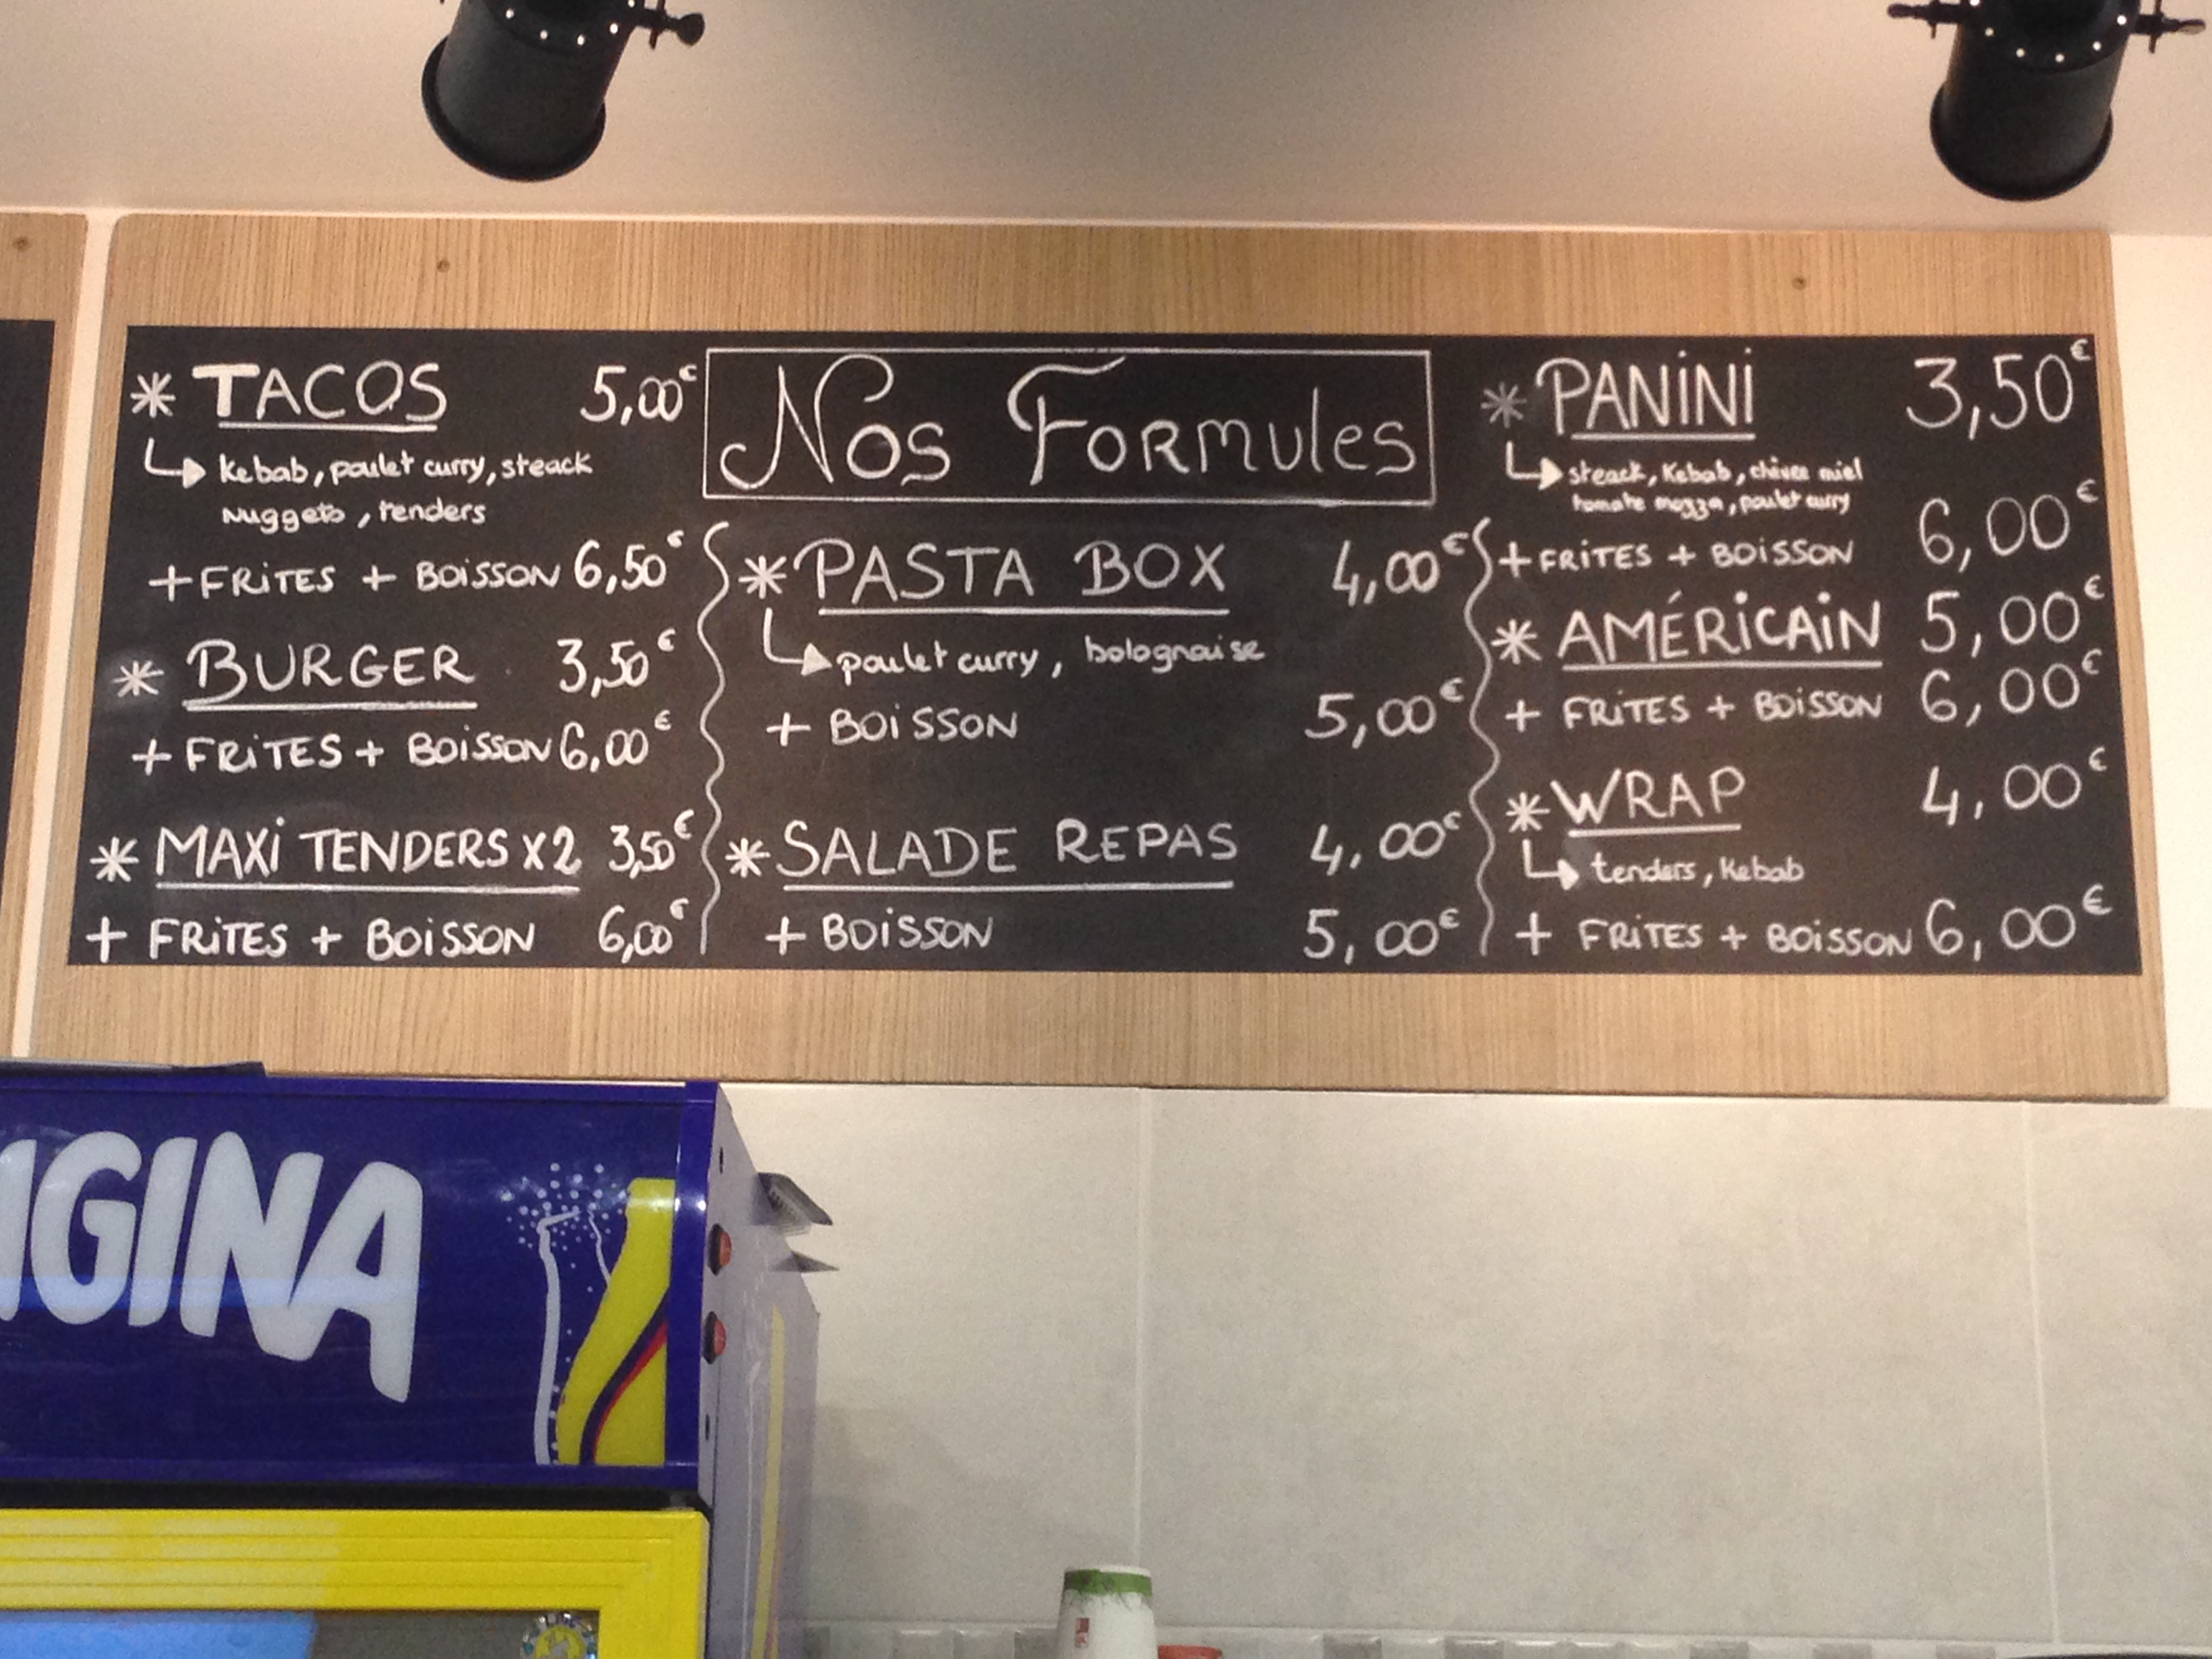 Nos Formules
* TACOS 5,00€
kebab, poulet curry, steack
Nuggets, tenders
+ FRiTES + BOiSSON 6,50€
* BURGER 3,50€
+ FRiTES + BOiSSON 6,00€
* MAXi TENDERS X2 3,50€
+ FRiTES + BOiSSON 6,00€
* PASTA BOX 4,00€
poulet curry, bolognaise
+ BOiSSON 5,00€
* SALADE REPAS 4,00€
+ BOiSSON 5,00€
* PANiNi 3,50€
steack, Kebab, chèvre miel
tomate mozza, poulet curry
+ FRiTES + BOiSSON 6,00€
* AMÉRiCAiN 5,00€
+ FRiTES + BOiSSON 6,00€
* WRAP 4,00€
tenders, Kebab
+ FRiTES + BOiSSON 6,00€
NGINA